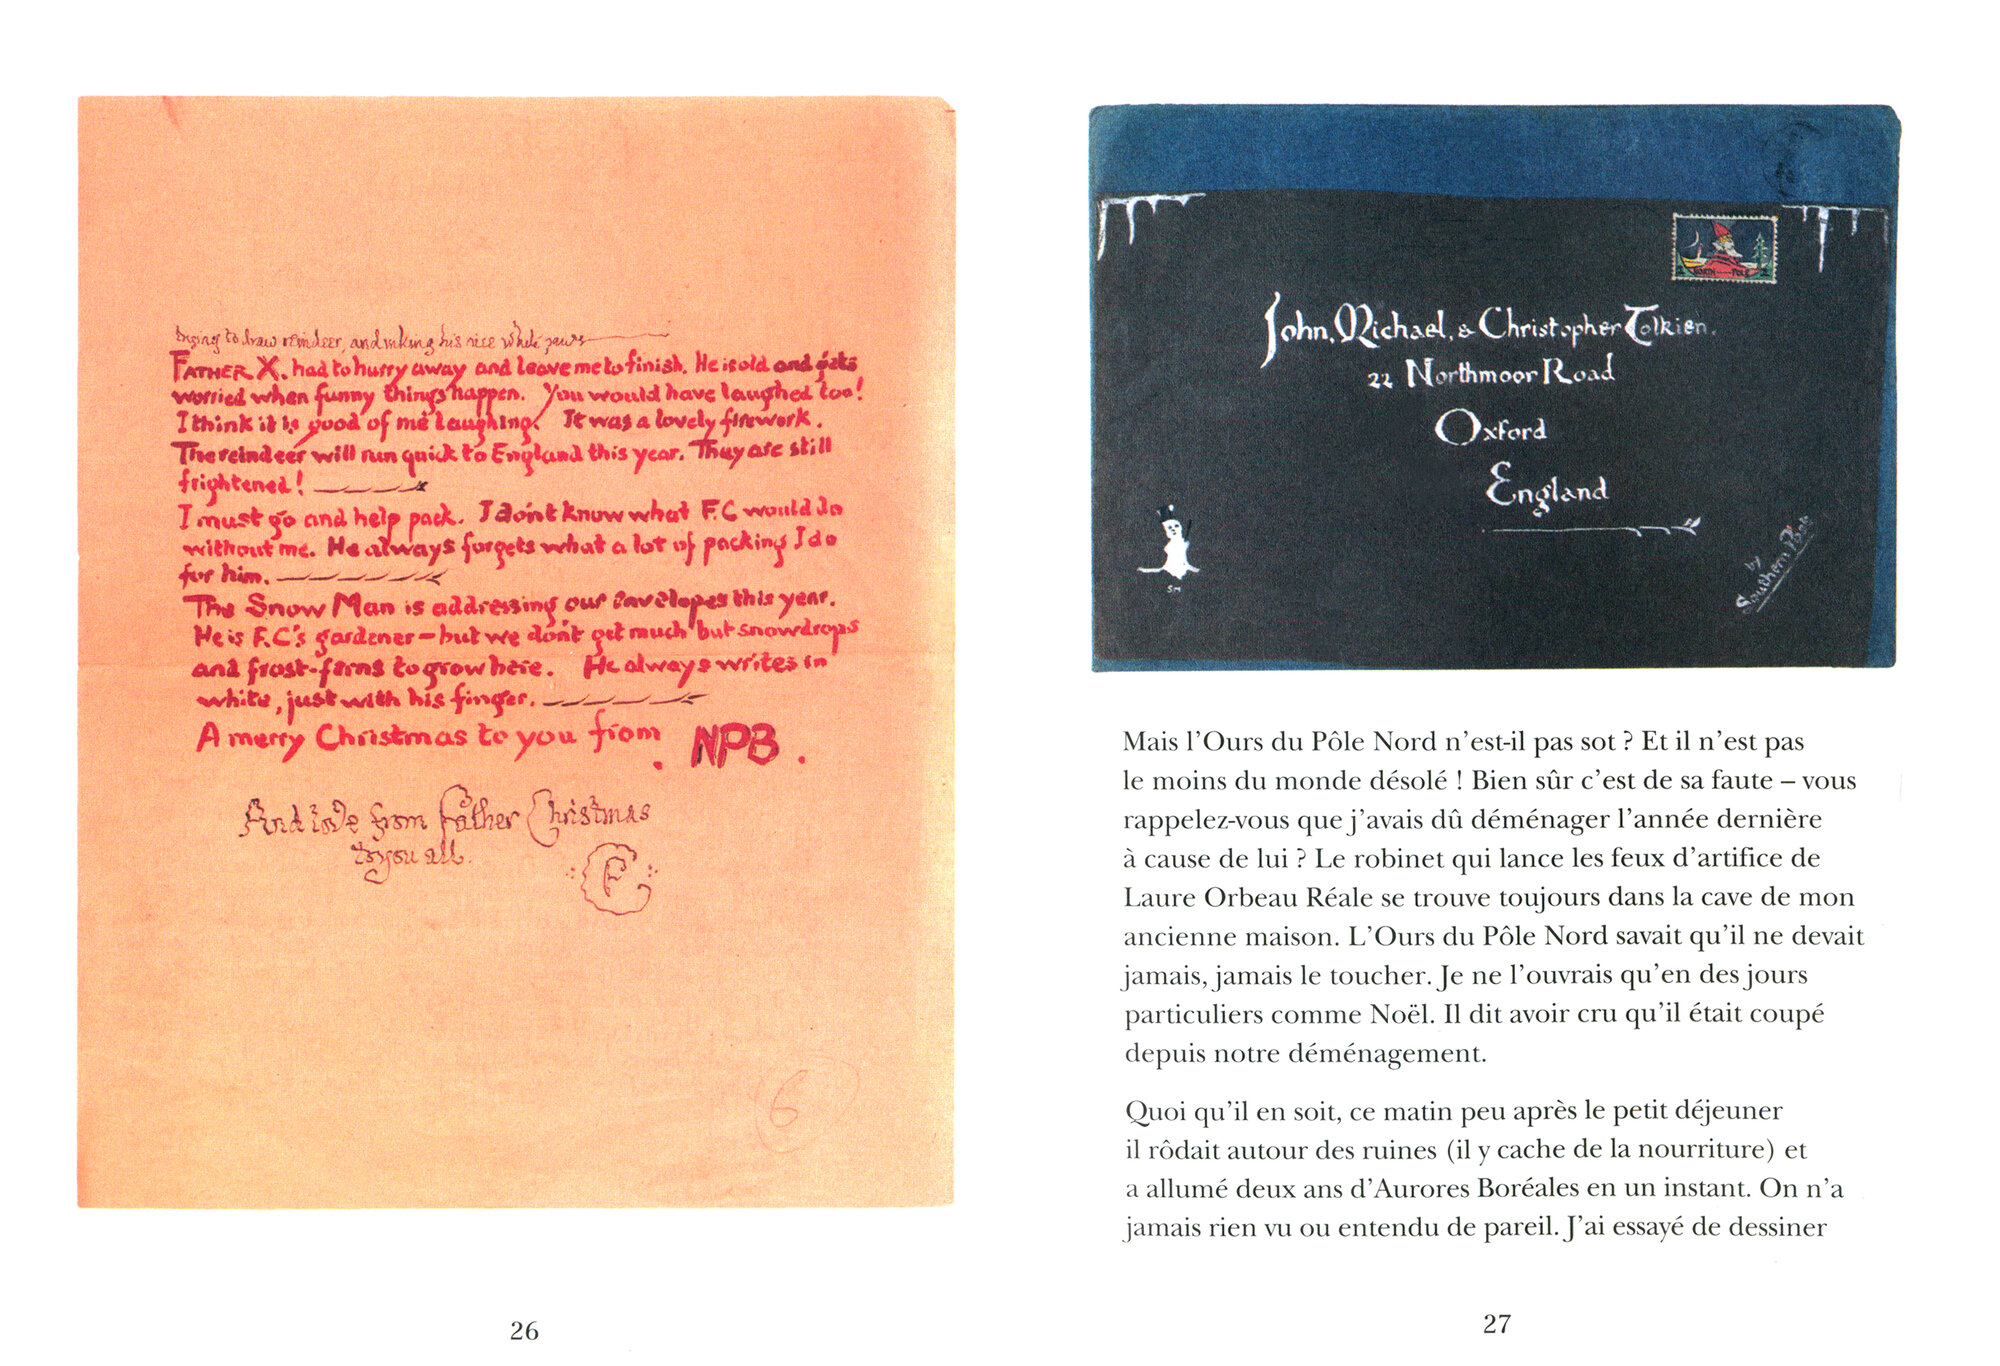 trying to draw reindeer, and inking his nice white paws
FATHER X. had to hurry away and leave me to finish. He is old and gets
worried when funny things happen. You would have laughed too!
I think it is good of me laughing. It was a lovely firework.
The reindeer will run quick to England this year. They are still
frightened!
I must go and help pack. I don't know what F.C would do
without me. He always forgets what a lot of packing I do
for him.
The Snow Man is addressing our envelopes this year.
He is F.C's gardener – but we don't get much but snowdrops
and frost-ferns to grow here. He always writes in
white, just with his finger.
A merry Christmas to you from NPB.
And love from Father Christmas
to you all.
FC
6
26
NORTH POLE
John, Michael, & Christopher Tolkien.
22 Northmoor Road
Oxford
England
SM
by
Southern Post
Mais l'Ours du Pôle Nord n'est-il pas sot ? Et il n'est pas
le moins du monde désolé ! Bien sûr c'est de sa faute – vous
rappelez-vous que j'avais dû déménager l'année dernière
à cause de lui ? Le robinet qui lance les feux d'artifice de
Laure Orbeau Réale se trouve toujours dans la cave de mon
ancienne maison. L'Ours du Pôle Nord savait qu'il ne devait
jamais, jamais le toucher. Je ne l'ouvrais qu'en des jours
particuliers comme Noël. Il dit avoir cru qu'il était coupé
depuis notre déménagement.
Quoi qu'il en soit, ce matin peu après le petit déjeuner
il rôdait autour des ruines (il y cache de la nourriture) et
a allumé deux ans d'Aurores Boréales en un instant. On n'a
jamais rien vu ou entendu de pareil. J'ai essayé de dessiner
27